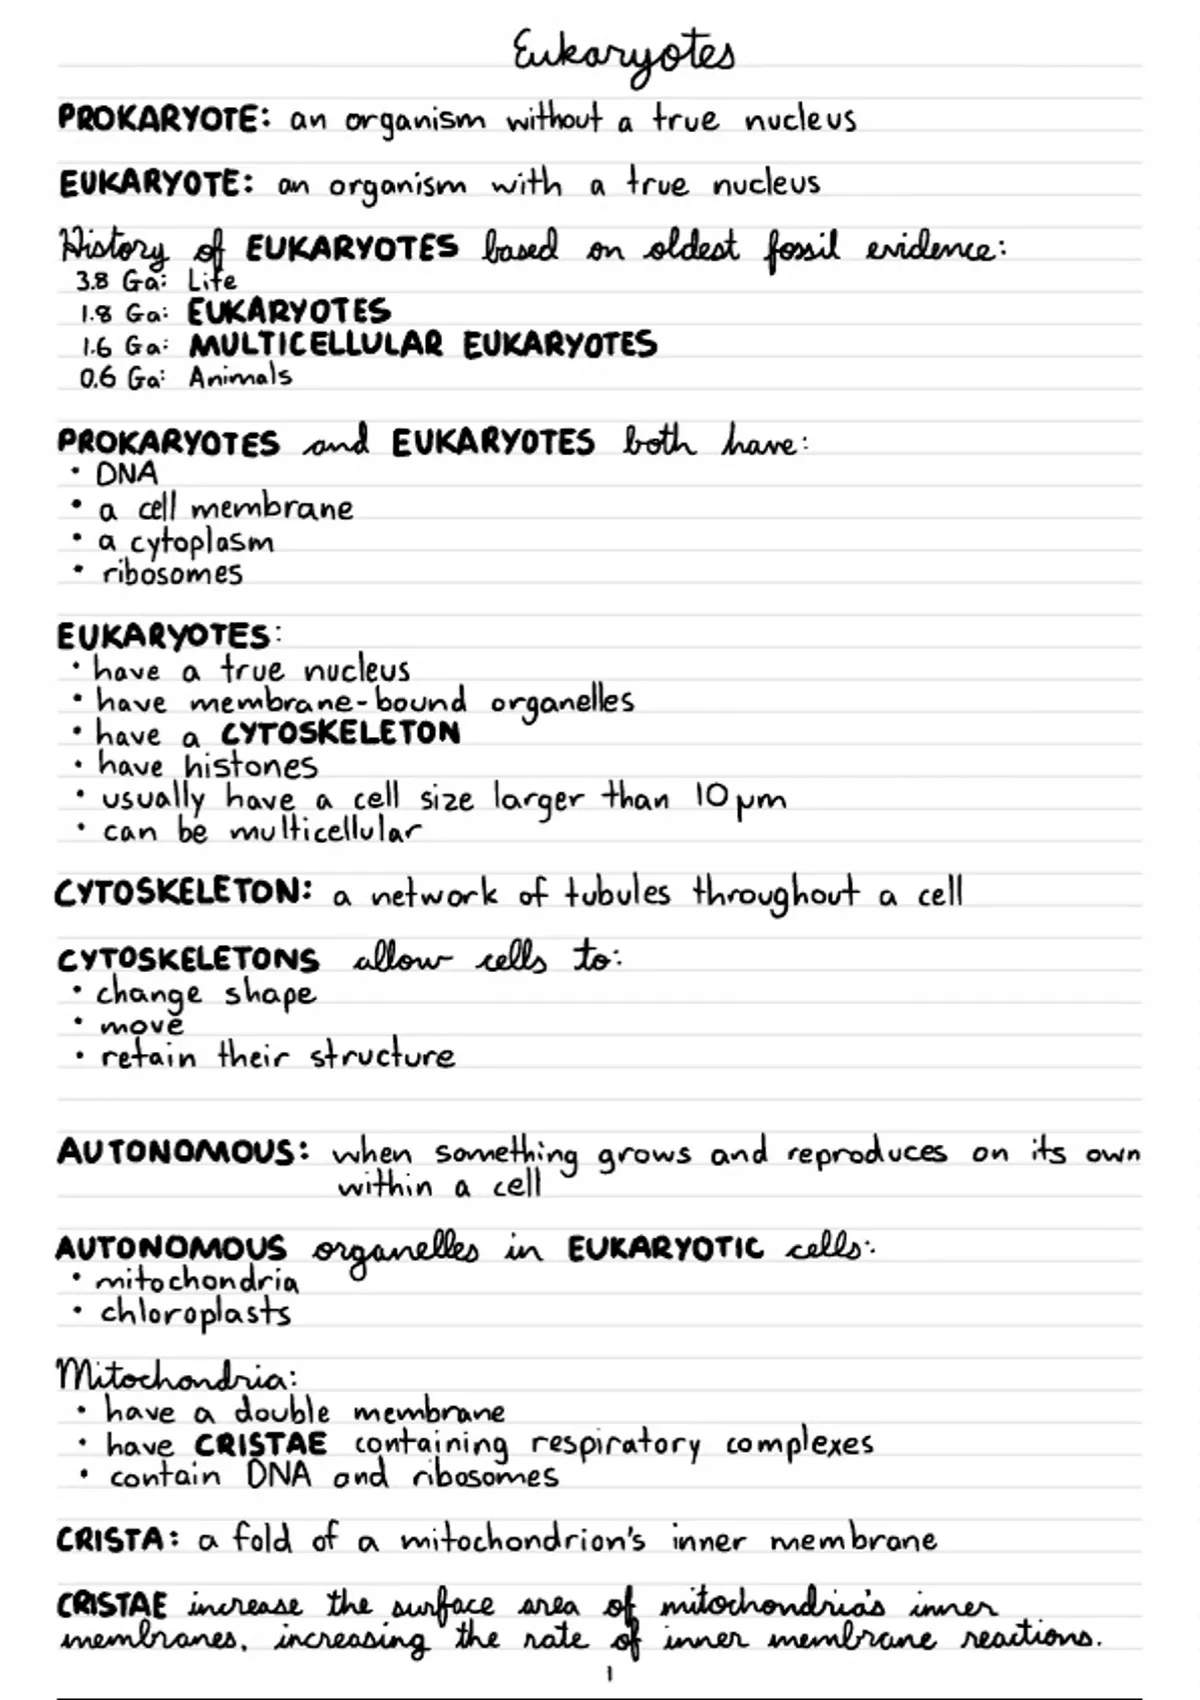 Eukaryotes
PROKARYOTE: an organism without a true nucleus
EUKARYOTE: an organism with a true nucleus
History of EUKARYOTES based on oldest fossil evidence:
3.8 Ga: Life
1.8 Ga: EUKARYOTES
1.6 Ga: MULTICELLULAR EUKARYOTES
0.6 Ga: Animals
PROKARYOTES and EUKARYOTES both have:
• DNA
• a cell membrane
• a cytoplasm
• ribosomes
EUKARYOTES:
• have a true nucleus
• have membrane-bound organelles
• have a CYTOSKELETON
• have histones
• usually have a cell size larger than 10 µm
• can be multicellular
CYTOSKELETON: a network of tubules throughout a cell
CYTOSKELETONS allow cells to:
• change shape
• move
• retain their structure
AUTONOMOUS: when something grows and reproduces on its own
within a cell
AUTONOMOUS organelles in EUKARYOTIC cells:
• mitochondria
• chloroplasts
Mitochondria:
• have a double membrane
• have CRISTAE containing respiratory complexes
• contain DNA and ribosomes
CRISTA: a fold of a mitochondrion's inner membrane
CRISTAE increase the surface area of mitochondria's inner
membranes, increasing the rate of inner membrane reactions.
1